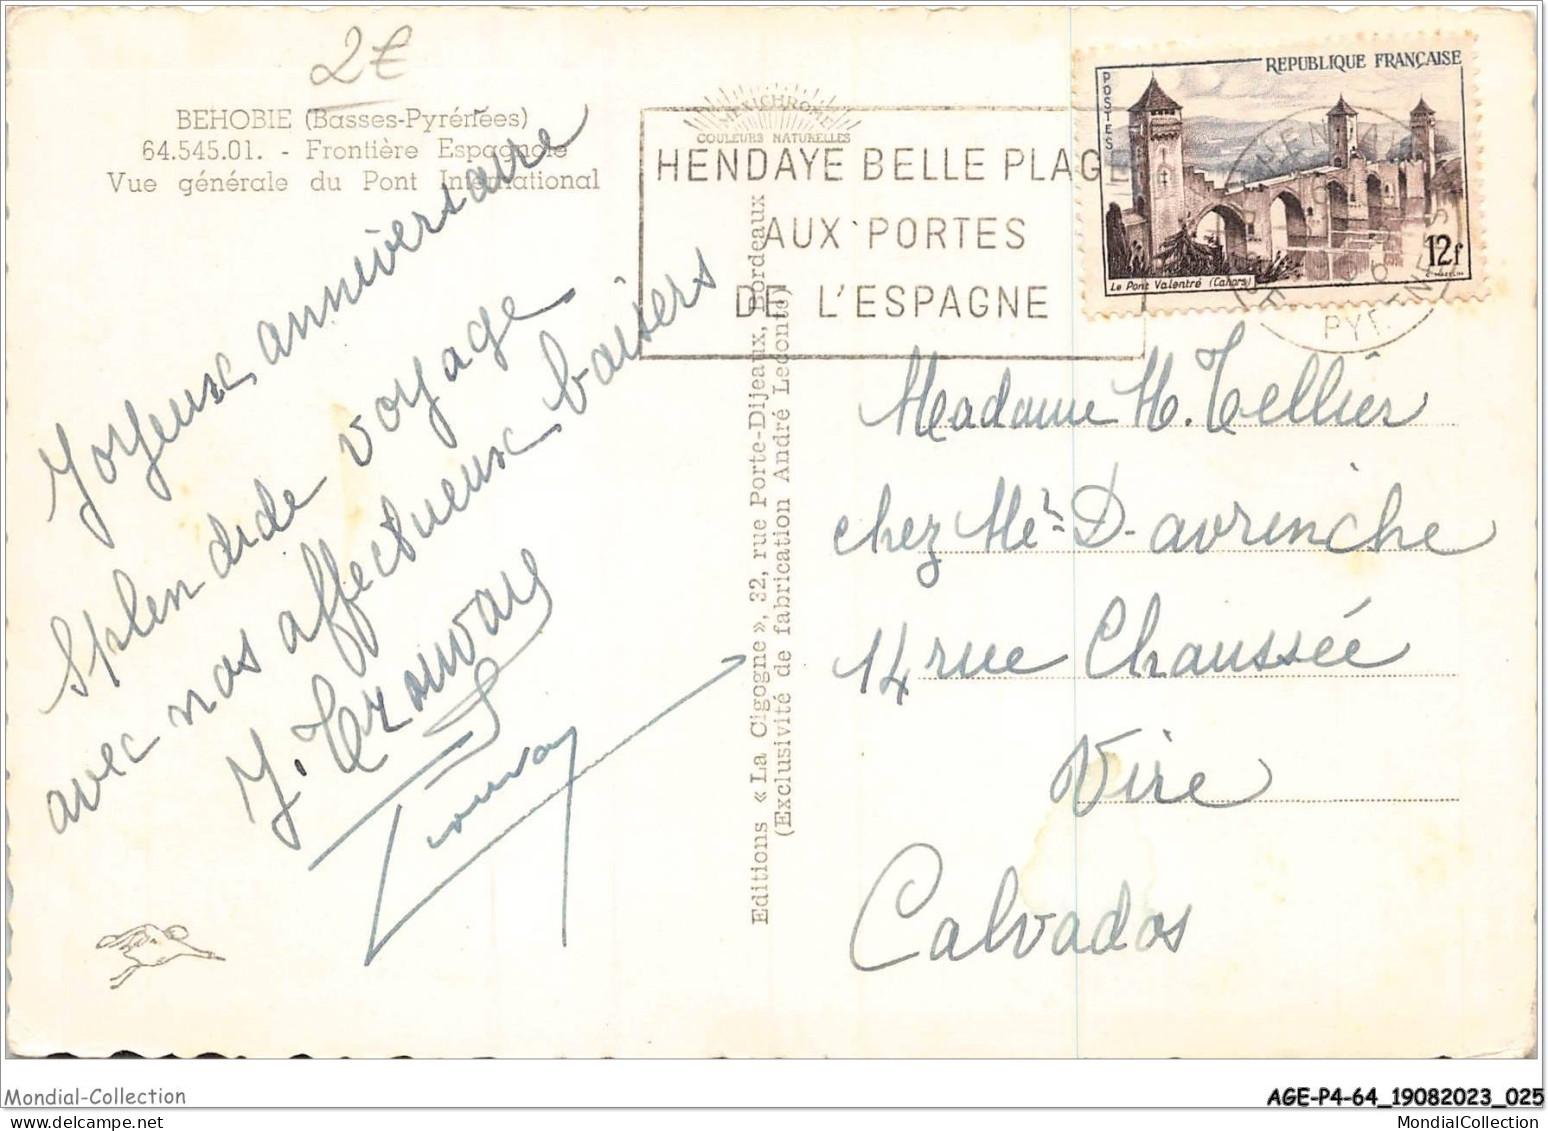 2€
BEHOBIE (Basses-Pyrénées)
64.545.01. - Frontière Espagnole
Vue générale du Pont International
Joyeux anniversaire
Splendide voyage
avec nos affectueux baisers
MEXICHROME
COULEURS NATURELLES
HENDAYE BELLE PLAGE
AUX PORTES
DE L'ESPAGNE
Editions « La Cigogne », 32, rue Porte-Dijeaux, Bordeaux
(Exclusivité de fabrication André Leconte)
REPUBLIQUE FRANÇAISE
POSTES
12f
Le Pont Valentré (Cahors)
Madame M. Tellier
chez Me D-avrinche
14 rue Chaussée
Vire
Calvados
Mondial-Collection
AGE-P4-64_19082023_025
MondialCollection